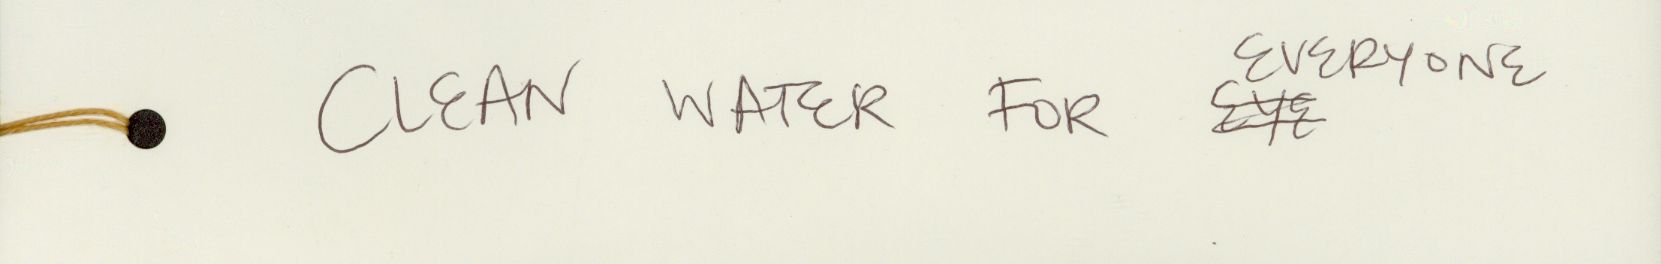 CLEAN WATER FOR EVERYONE